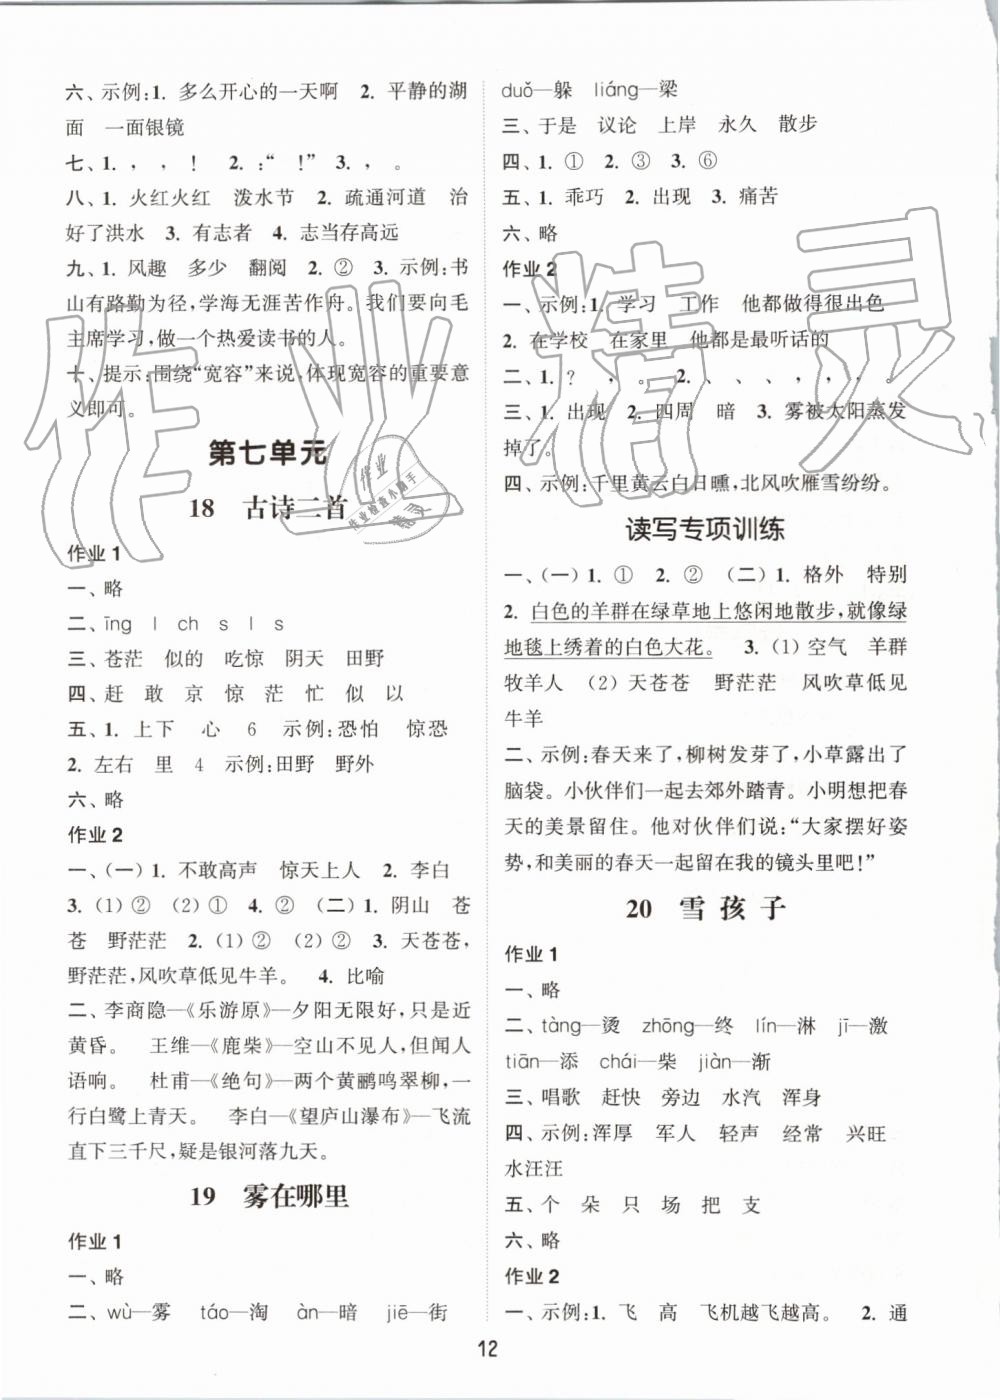 六、示例:1. 多么开心的一天啊　2. 平静的湖
面　一面银镜
七、1. ，，！　2. :“　!”　3. ，。
八、1. 火红火红　泼水节　2. 疏通河道　治
好了洪水　3. 有志者　4. 志当存高远
九、1. 风趣　多少　翻阅　2. ②　3. 示例:书
山有路勤为径,学海无涯苦作舟。我们要向毛
主席学习,做一个热爱读书的人。
十、提示:围绕“宽容”来说,体现宽容的重要意
义即可。
第七单元
18　古诗二首
作业 1
一、略
二、īng　l　ch　s　l　s
三、苍茫　似的　吃惊　阴天　田野
四、赶　敢　京　惊　茫　忙　似　以
五、1. 上下　心　6　示例:恐怕　惊恐
2. 左右　里　4　示例:田野　野外
六、略
作业 2
一、(一)1. 不敢高声　惊天上人　2. 李白
3. (1)②　(2)①　4. ②　(二)1. 阴山　苍
苍　野茫茫　2. (1)②　(2)②　3. 天苍苍,
野茫茫,风吹草低见牛羊。　4. 比喻
二、李商隐—《乐游原》—夕阳无限好,只是近
黄昏。　王维—《鹿柴》—空山不见人,但闻人
语响。　杜甫—《绝句》—两个黄鹂鸣翠柳,一
行白鹭上青天。　李白—《望庐山瀑布》—飞流
直下三千尺,疑是银河落九天。
19　雾在哪里
作业 1
一、略
二、wù—雾　táo—淘　àn—暗　jiē—街
duǒ—躲　liáng—梁
三、于是　议论　上岸　永久　散步
四、1. ①　2. ③　3. ⑥
五、1. 乖巧　2. 出现　3. 痛苦
六、略
作业 2
一、示例:1. 学习　工作　他都做得很出色
2. 在学校　在家里　他都是最听话的
二、1. ？　，　。　2. 、　、　，　，　，　。
三、1. 出现　2. 四周　暗　3. 雾被太阳蒸发
掉了。
四、示例:千里黄云白日曛,北风吹雁雪纷纷。
读写专项训练
一、(一)1. ①　2. ②　(二)1. 格外　特别
2. 白色的羊群在绿草地上悠闲地散步,就像绿
地毯上绣着的白色大花。　3. (1)空气　羊群
牧羊人　(2)天苍苍　野茫茫　风吹草低见
牛羊
二、示例:春天来了,柳树发芽了,小草露出了
脑袋。小伙伴们一起去郊外踏青。小明想把春
天的美景留住。他对伙伴们说:“大家摆好姿
势,和美丽的春天一起留在我的镜头里吧!”
20　雪孩子
作业 1
一、略
二、tàng—烫　zhōng—终　lín—淋　jī—激
tiān—添　chái—柴　jiàn—渐
三、唱歌　赶快　旁边　水花　浑身
四、示例:浑厚　军人　轻声　经常　兴旺
水汪汪
五、个　朵　只　场　把　支
六、略
作业 2
一、示例:1. 飞　高　飞机越飞越高。　2. 通
12
作业精灵